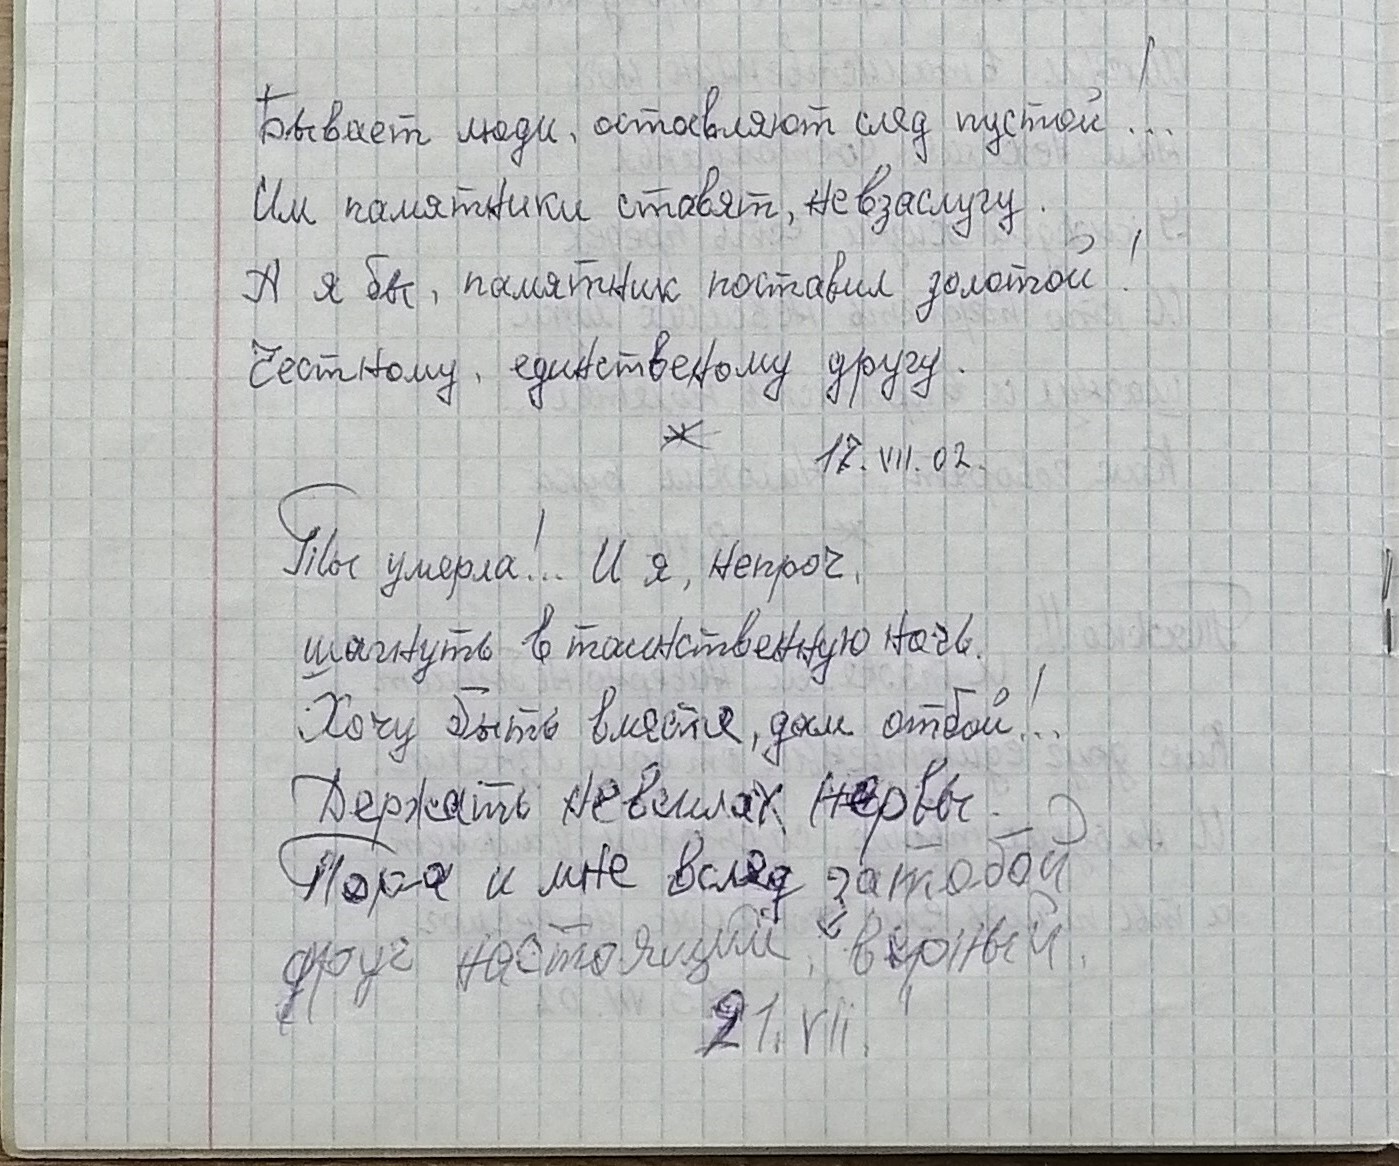 Бывает люди, оставляют след пустой!...
Им памятники ставят, невзаслугу.
А я бы, памятник поставил золотой!
Честному, единственому другу.
*
17.VII.02.
Ты умерла!... И я, непроч,
шагнуть в таинственную ночь.
Хочу быть вместе, дам отбой!...
Держать невсилах нервы.
Пора и мне вслед затобой
друг настоящий, верный.
21.VII.